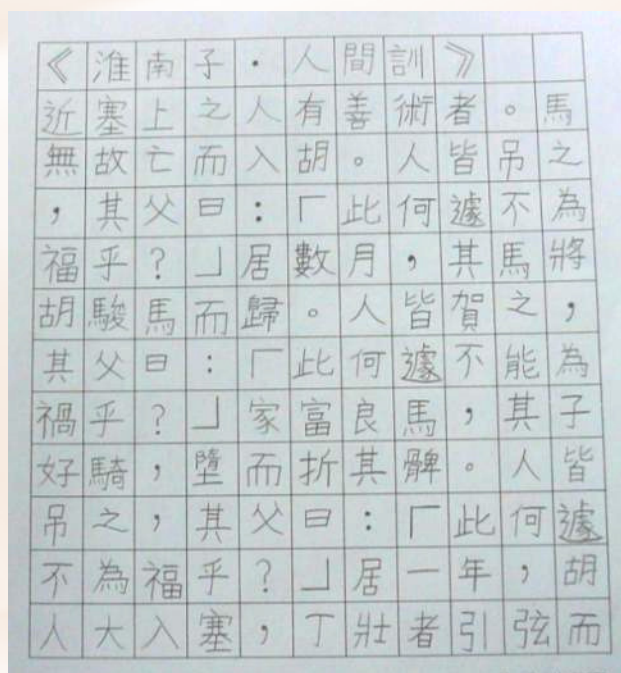 《淮南子·人間訓》
近塞上之人有善術者。馬
無故亡而入胡。人皆吊之
，其父曰：「此何遽不為
福乎？」居數月，其馬將
胡駿馬而歸。人皆賀之，
其父曰：「此何遽不能為
禍乎？」家富良馬，其子
好騎，墮而折其髀。人皆
吊之，其父曰：「此何遽
不為福乎？」居一年，胡
人大入塞，丁壯者引弦而